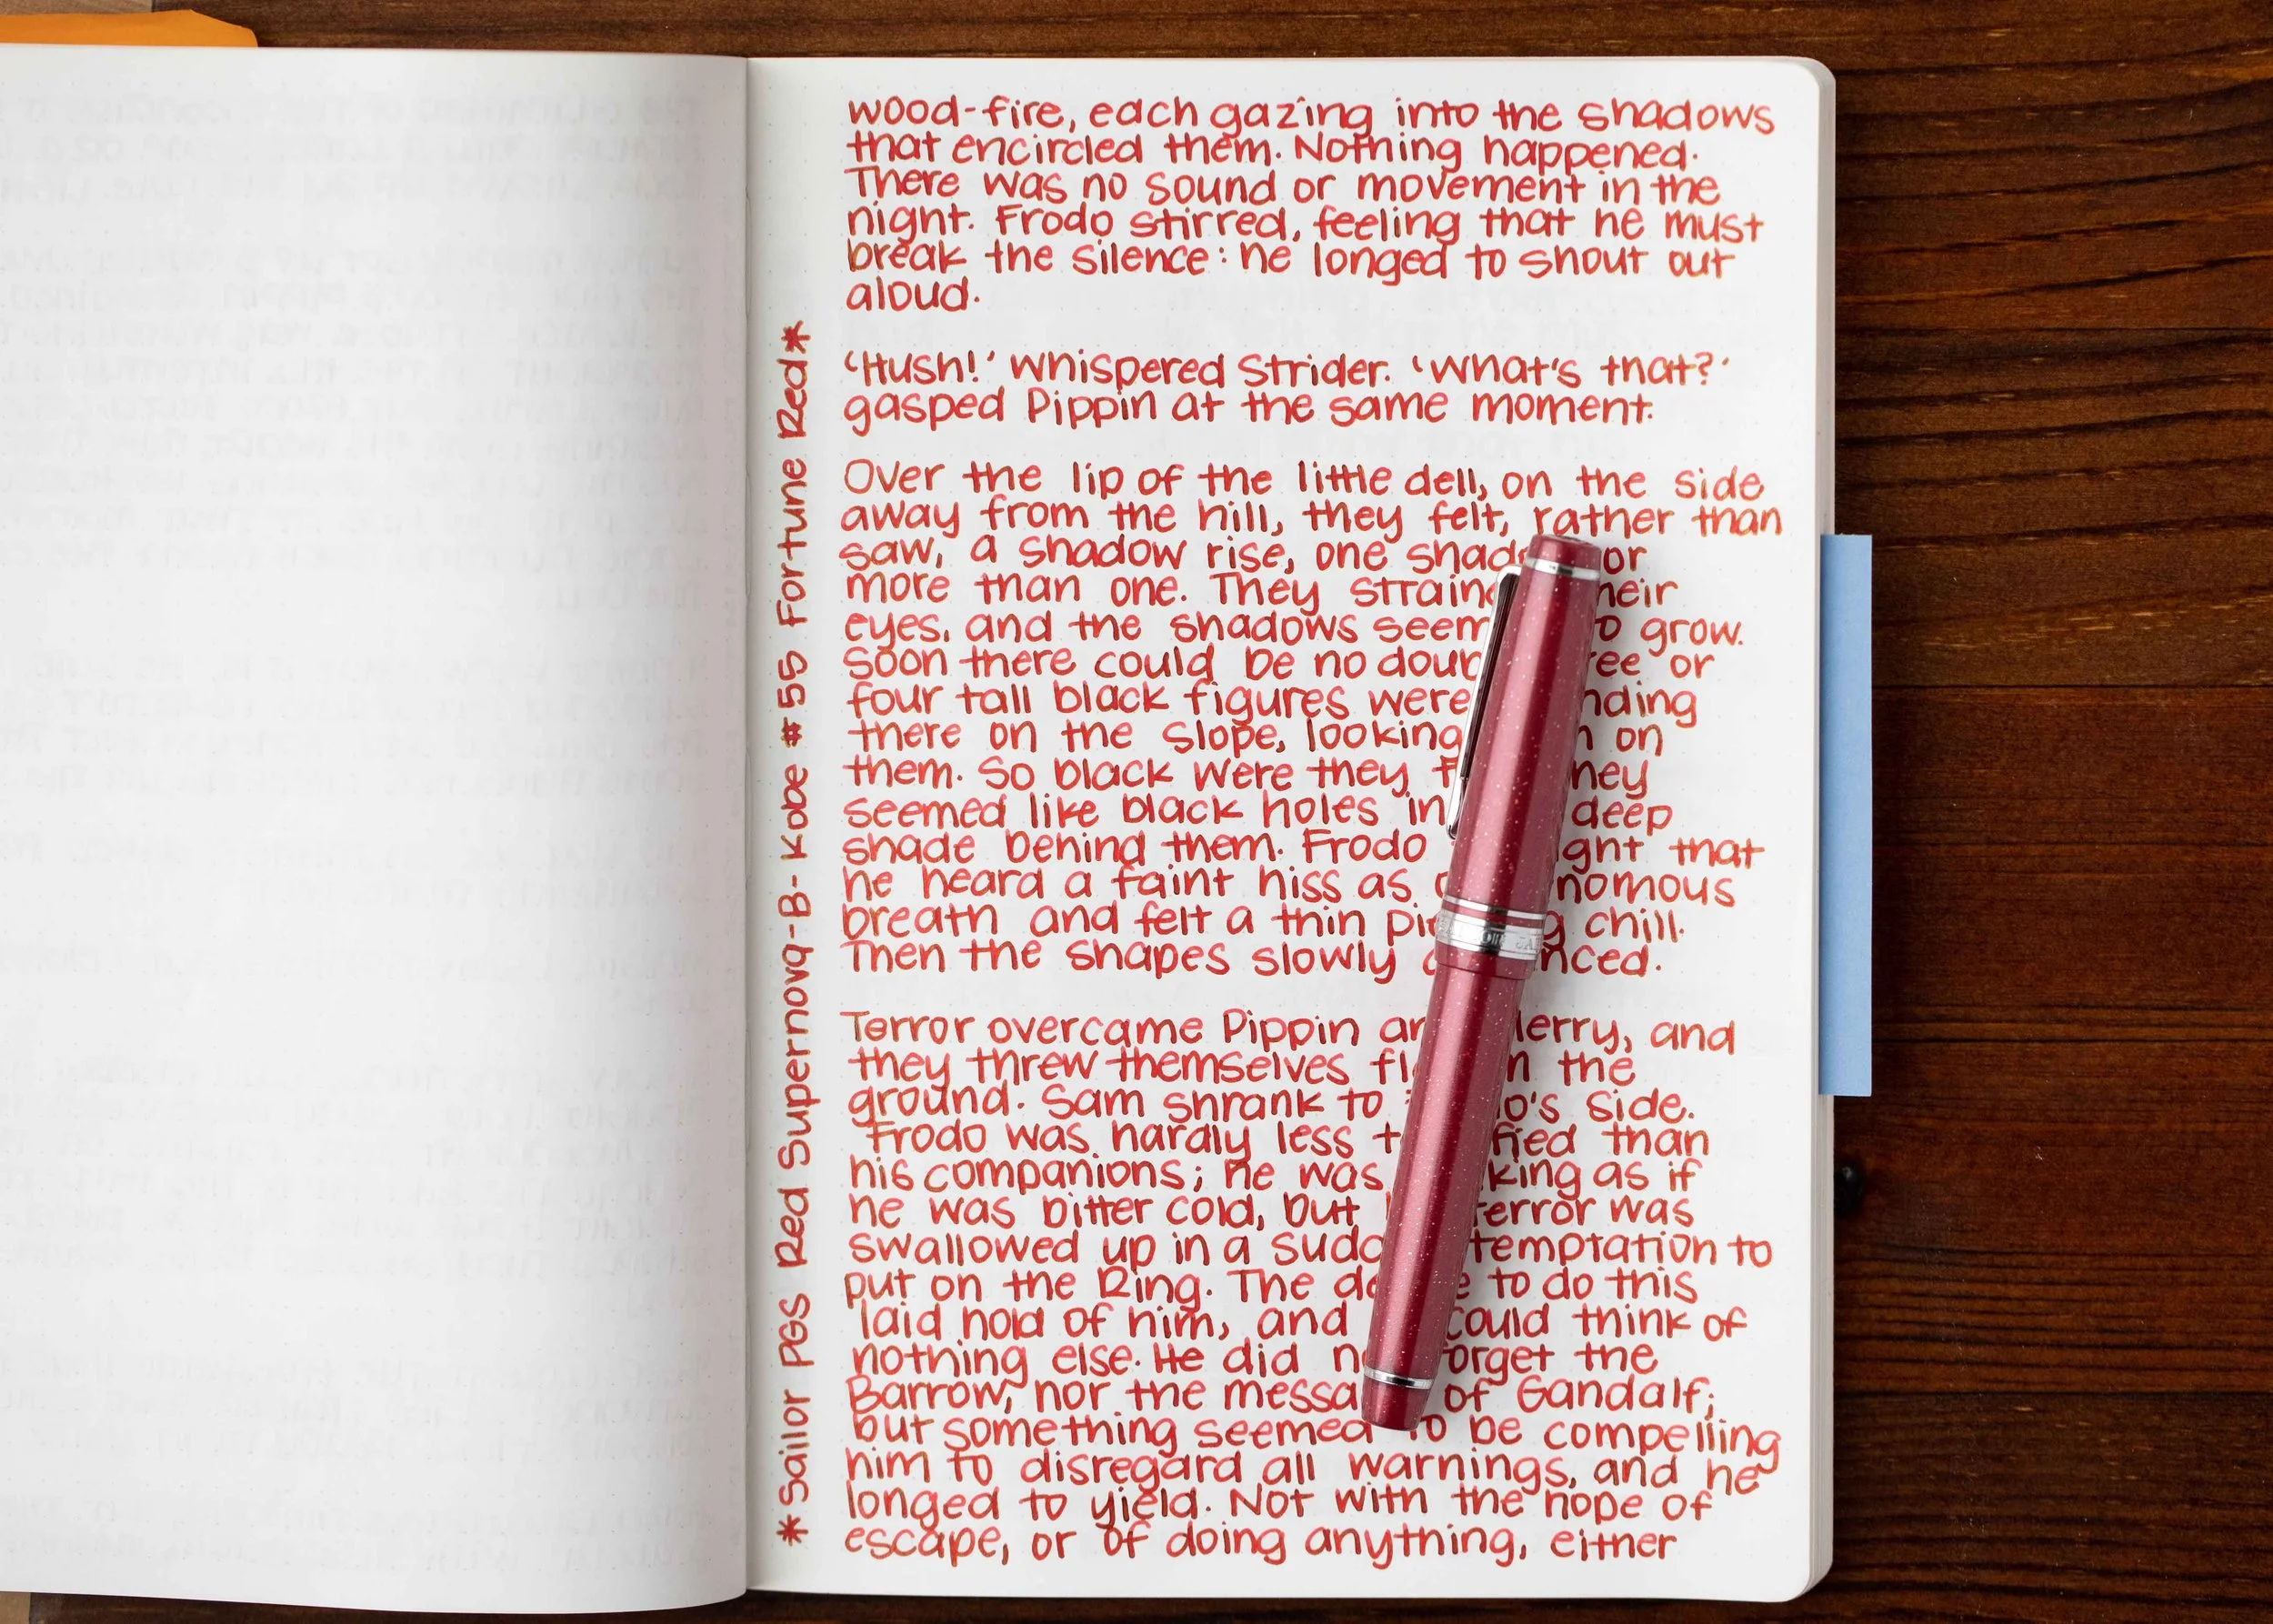 wood-fire, each gazing into the shadows
that encircled them. Nothing happened.
There was no sound or movement in the
night. Frodo stirred, feeling that he must
break the silence: he longed to shout out
aloud.
'Hush!' whispered Strider. 'What's that?'
gasped Pippin at the same moment.
Over the lip of the little dell, on the side
away from the hill, they felt, rather than
saw, a shadow rise, one or
more than one. They their
eyes, and the shadows to grow.
Soon there could be no or
four tall black figures were
there on the slope, looking on
them. So black were they they
seemed like black holes in deep
shade behind them. Frodo that
he heard a faint hiss as
breath and felt a thin chill.
Then the shapes slowly
Terror overcame Pippin Merry, and
they threw themselves the
ground. Sam shrank to side.
Frodo was hardly less than
his companions; he was as if
he was bitter cold, but terror was
swallowed up in a temptation to
put on the Ring. The to do this
laid hold of him, and could think of
nothing else. He did forget the
Barrow, nor the of Gandalf;
but something seemed to be compelling
him to disregard all warnings, and he
longed to yield. Not with the hope of
escape, or of doing anything, either
*Sailor PGS Red Supernova-B-Kobe #55 Fortune Red*